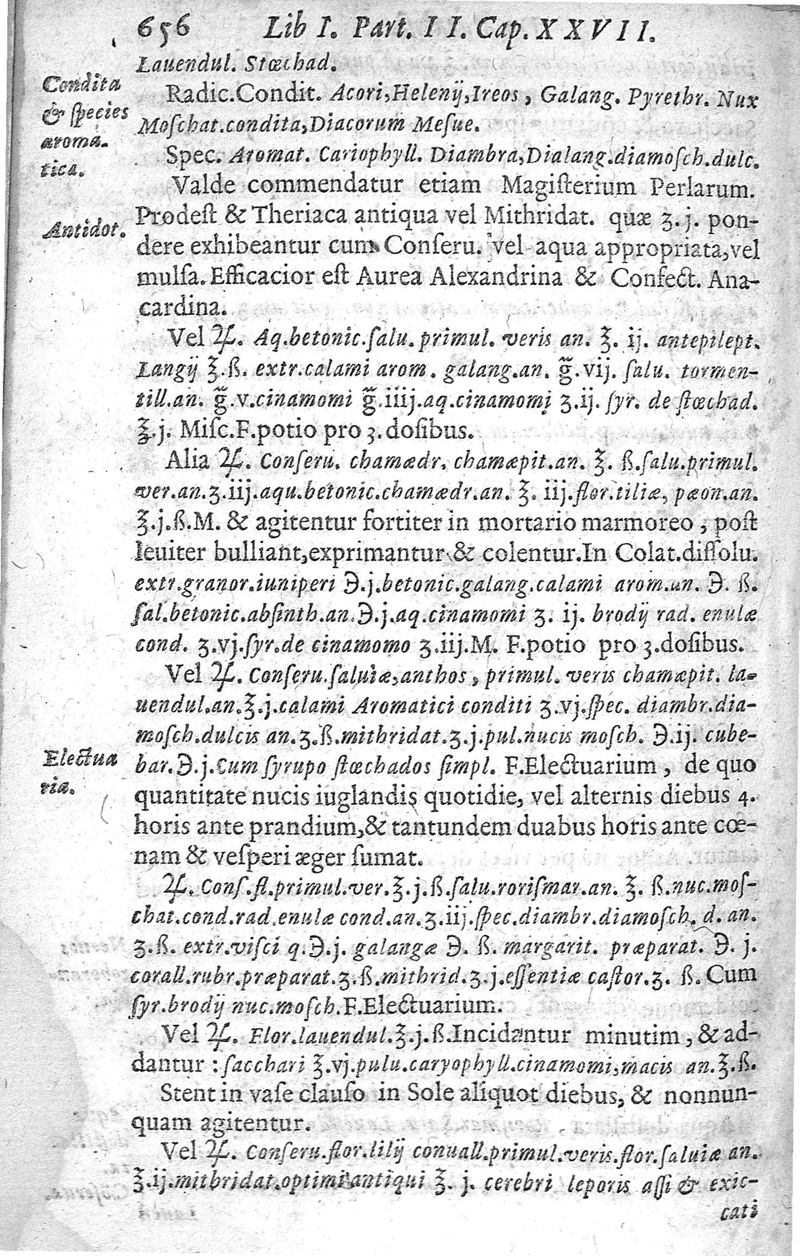 656 Lib I. Part. II. Cap. XXVII.
Lauendul. Stœchad.
Condita
& ſpecies
aroma-
tica.
Radic.Condit. Acori,Helenij,Ireos, Galang. Pyrethr. Nux
Moſchat.condita,Diacorum Meſue.
Spec. Aromat. Cariophyll. Diambra,Dialang.diamoſch.dulc.
Valde commendatur etiam Magiſterium Perlarum.
Antidot.
Prodeſt & Theriaca antiqua vel Mithridat. quæ ʒ.j. pon-
dere exhibeantur cum Conſeru. vel aqua appropriata,vel
mulſa. Efficacior eſt Aurea Alexandrina & Confect. Ana-
cardina.
Vel ♃. Aq.betonic.ſalu.primul. veris an. ℥. ij. antepilept.
Langij ℥.ß. extr.calami arom. galang.an. g̃.vij. ſalu. tormen-
till.an. g̃.v.cinamomi g̃.iiij.aq.cinamomi ʒ.ij. ſyr. de ſtœchad.
℥.j. Miſc.F.potio pro 3.doſibus.
Alia ♃. Conſeru. chamædr. chamæpit.an. ℥. ß.ſalu.primul.
ver.an.ʒ.iij.aqu.betonic.chamædr.an. ℥. iij.flor.tiliæ, pæon.an.
℥.j.ß.M. & agitentur fortiter in mortario marmoreo, poſt
leuiter bulliant,exprimantur & colentur.In Colat.diſſolu.
extr.granor.iuniperi ℈.j.betonic.galang.calami arom.an. ℈. ß.
ſal.betonic.abſinth.an.℈.j.aq.cinamomi ʒ. ij. brodij rad. enulæ
cond. ʒ.vj.ſyr.de cinamomo ʒ.iij.M. F.potio pro 3.doſibus.
Vel ♃. Conſeru.ſaluiæ,anthos, primul. veris chamæpit. la-
uendul.an.℥.j.calami Aromatici conditi ʒ.vj.ſpec. diambr.dia-
moſch.dulcis an.ʒ.ß.mithridat.ʒ.j.pul.nucis moſch. ℈.ij. cube-
Electua
riæ.
bar.℈.j.Cum ſyrupo ſtœchados ſimpl. F.Electuarium, de quo
quantitate nucis iuglandis quotidie, vel alternis diebus 4.
horis ante prandium,& tantundem duabus horis ante cœ-
nam & veſperi æger ſumat.
♃. Conſ.fl.primul.ver.℥.j.ß.ſalu.roriſmar.an. ℥. ß.nuc.moſ-
chat.cond.rad.enulæ cond.an.ʒ.iij.ſpec.diambr.diamoſch. d. an.
ʒ.ß. extr.viſci q.℈.j. galangæ ℈. ß. margarit. præparat. ℈. j.
corall.rubr.præparat.ʒ.ß.mithrid.ʒ.j.eſſentiæ caſtor.ʒ. ß. Cum
ſyr.brodij nuc.moſch.F.Electuarium.
Vel ♃. Flor.lauendul.℥.j.ß.Incidantur minutim, & ad-
dantur : ſacchari ℥.vj.pulu.caryophyll.cinamomi,macis an.℥.ß.
Stent in vaſe clauſo in Sole aliquot diebus, & nonnun-
quam agitentur.
Vel ♃. Conſeru.flor.lilij conuall.primul.veris.flor.ſaluiæ an.
℥.ij.mithridat.optimi antiqui ℥. j. cerebri leporis aſſi & exic-
cati